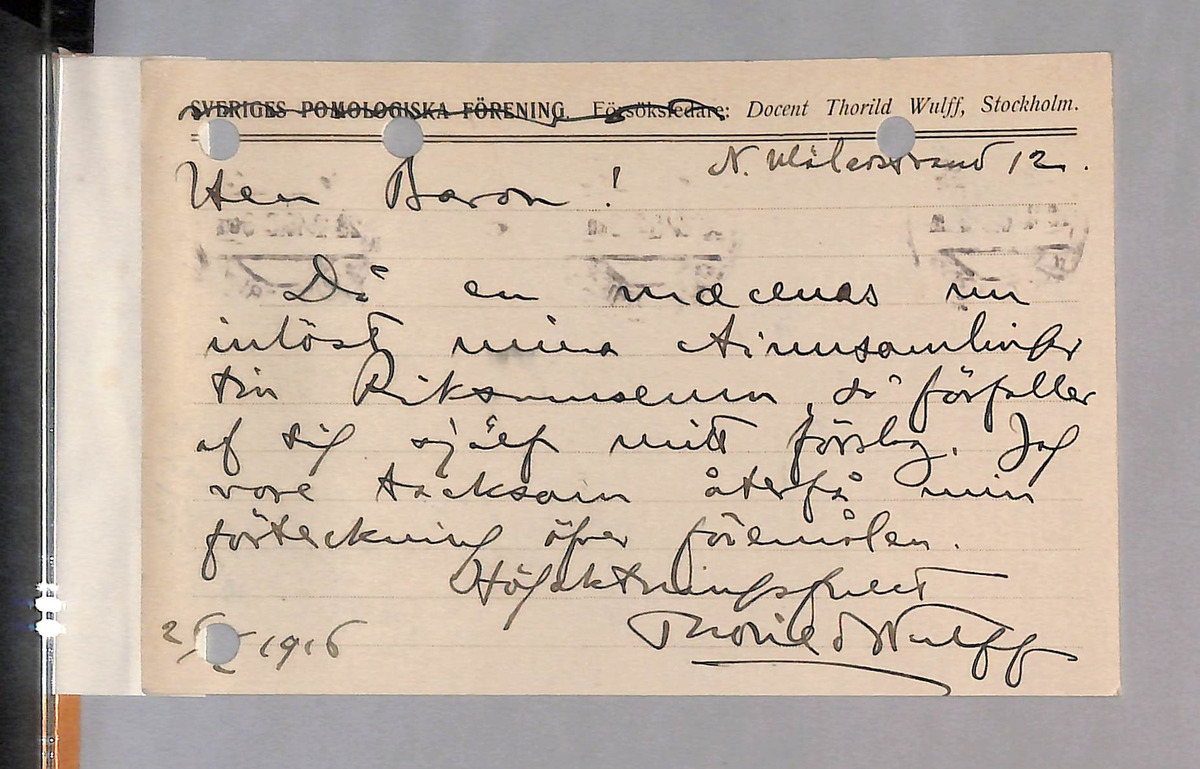 SVERIGES POMOLOGISKA FÖRENING. Försöksledare: Docent Thorild Wulff, Stockholm.
N. Mälarstrand 12.
Herr Baron!
Då en mæcenas nu
inlöst mina
till Riksmuseum, så förfaller
af sig sjelf mitt förslag. Jag
vore tacksam återfå min
förteckning öfver föremålen.
Högaktningsfullt
Thorild Wulff
1916